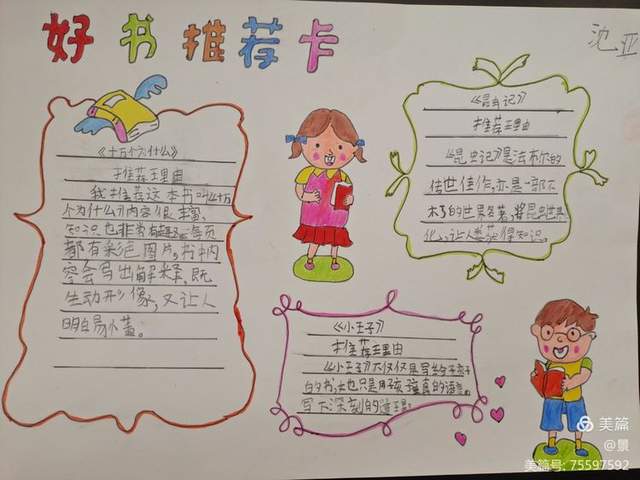 好书推荐卡
沈亚
《十万个为什么》
推荐理由
我推荐这本书叫《十万
个为什么》内容很丰富,
知识也非常有趣,每页
都有彩色图片,书内
容会写出解释,既
生动形像,又让人
明白易懂。
《昆虫记》
推荐理由
《昆虫记》是法布尔的
传世佳作,亦是一部不
朽的世界名著,将昆虫世界
化,让人类获得知识。
《小王子》
推荐理由
《小王子》不仅仅是写给孩子
的书,也只是用孩童真的语
写下深刻的道理。
美篇
@景
美篇号: 75597592